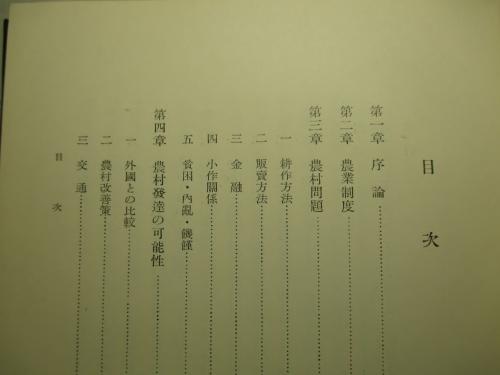 目次
第一章 序論
第二章 農業制度
第三章 農村問題
一 耕作方法
二 販賣方法
三 金融
四 小作關係
五 貧困・內亂・饑饉
第四章 農村發達の可能性
一 外國との比較
二 農村改善策
三 交通
目次